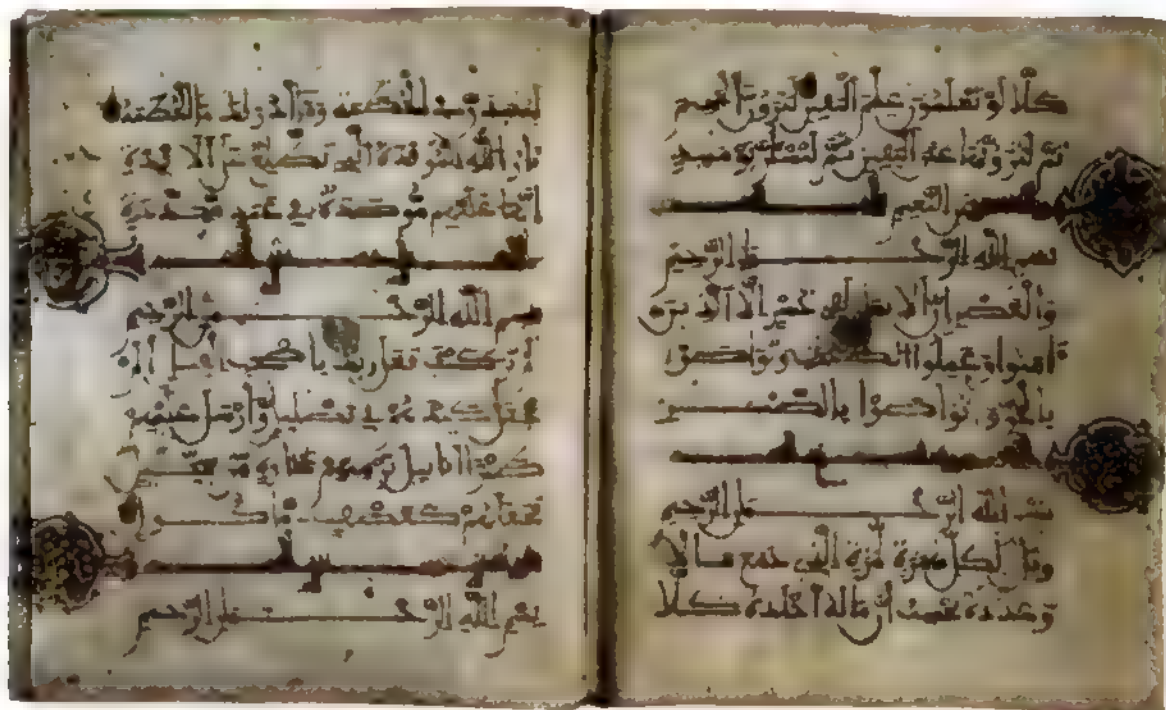 كلا لو تعلمون علم اليقين لترون الجحيم
ثم لترونها عين اليقين ثم لتسئلن يومئذ
عن النعيم
بسم الله الرحمن الرحيم
والعصر إن الإنسن لفي خسر إلا الذين
ءامنوا وعملوا الصلحت وتواصوا
بالحق وتواصوا بالصبر
بسم الله الرحمن الرحيم
ويل لكل همزة لمزة الذي جمع مالا
وعدده يحسب أن ماله أخلده كلا
لينبذن في الحطمة وما أدريك ما الحطمة
نار الله الموقدة التي تطلع على الأفئدة
إنها عليهم موصدة في عمد ممددة
بسم الله الرحمن الرحيم
ألم تر كيف فعل ربك بأصحب الفيل ألم
يجعل كيدهم في تضليل وأرسل عليهم
طيرا أبابيل ترميهم بحجارة من سجيل
فجعلهم كعصف مأكول
بسم الله الرحمن الرحيم